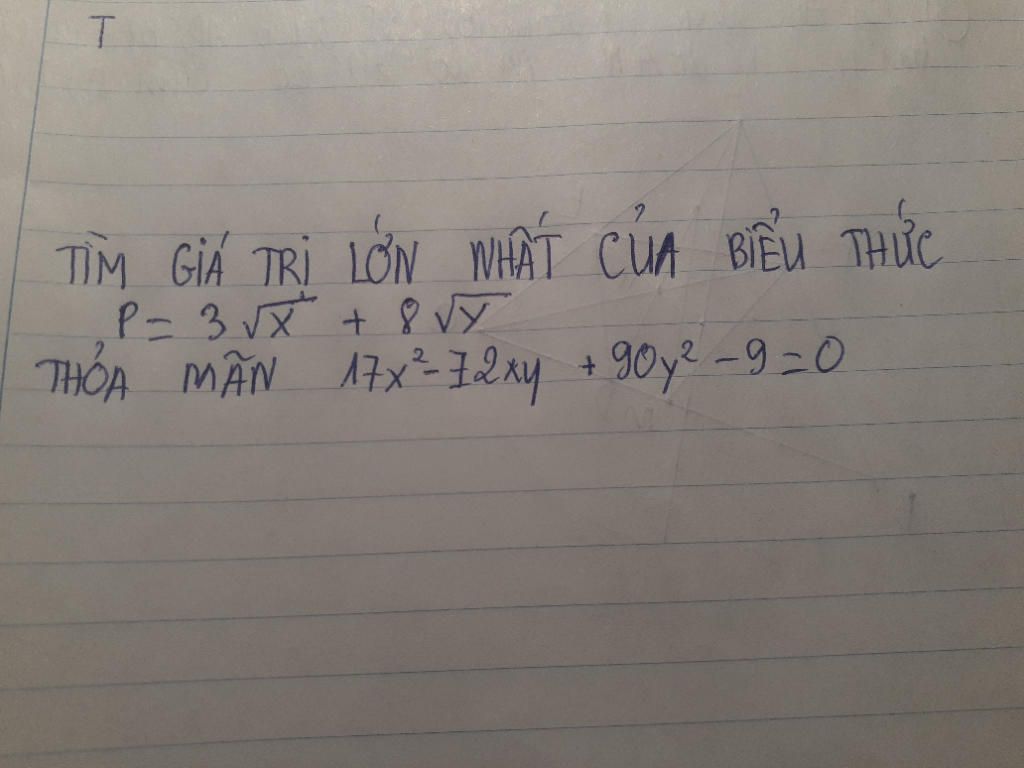 T
TÌM GIÁ TRỊ LỚN NHẤT CỦA BIỂU THỨC
P = 3√x + 8√y
THỎA MÃN 17x² - 72xy + 90y² - 9 = 0